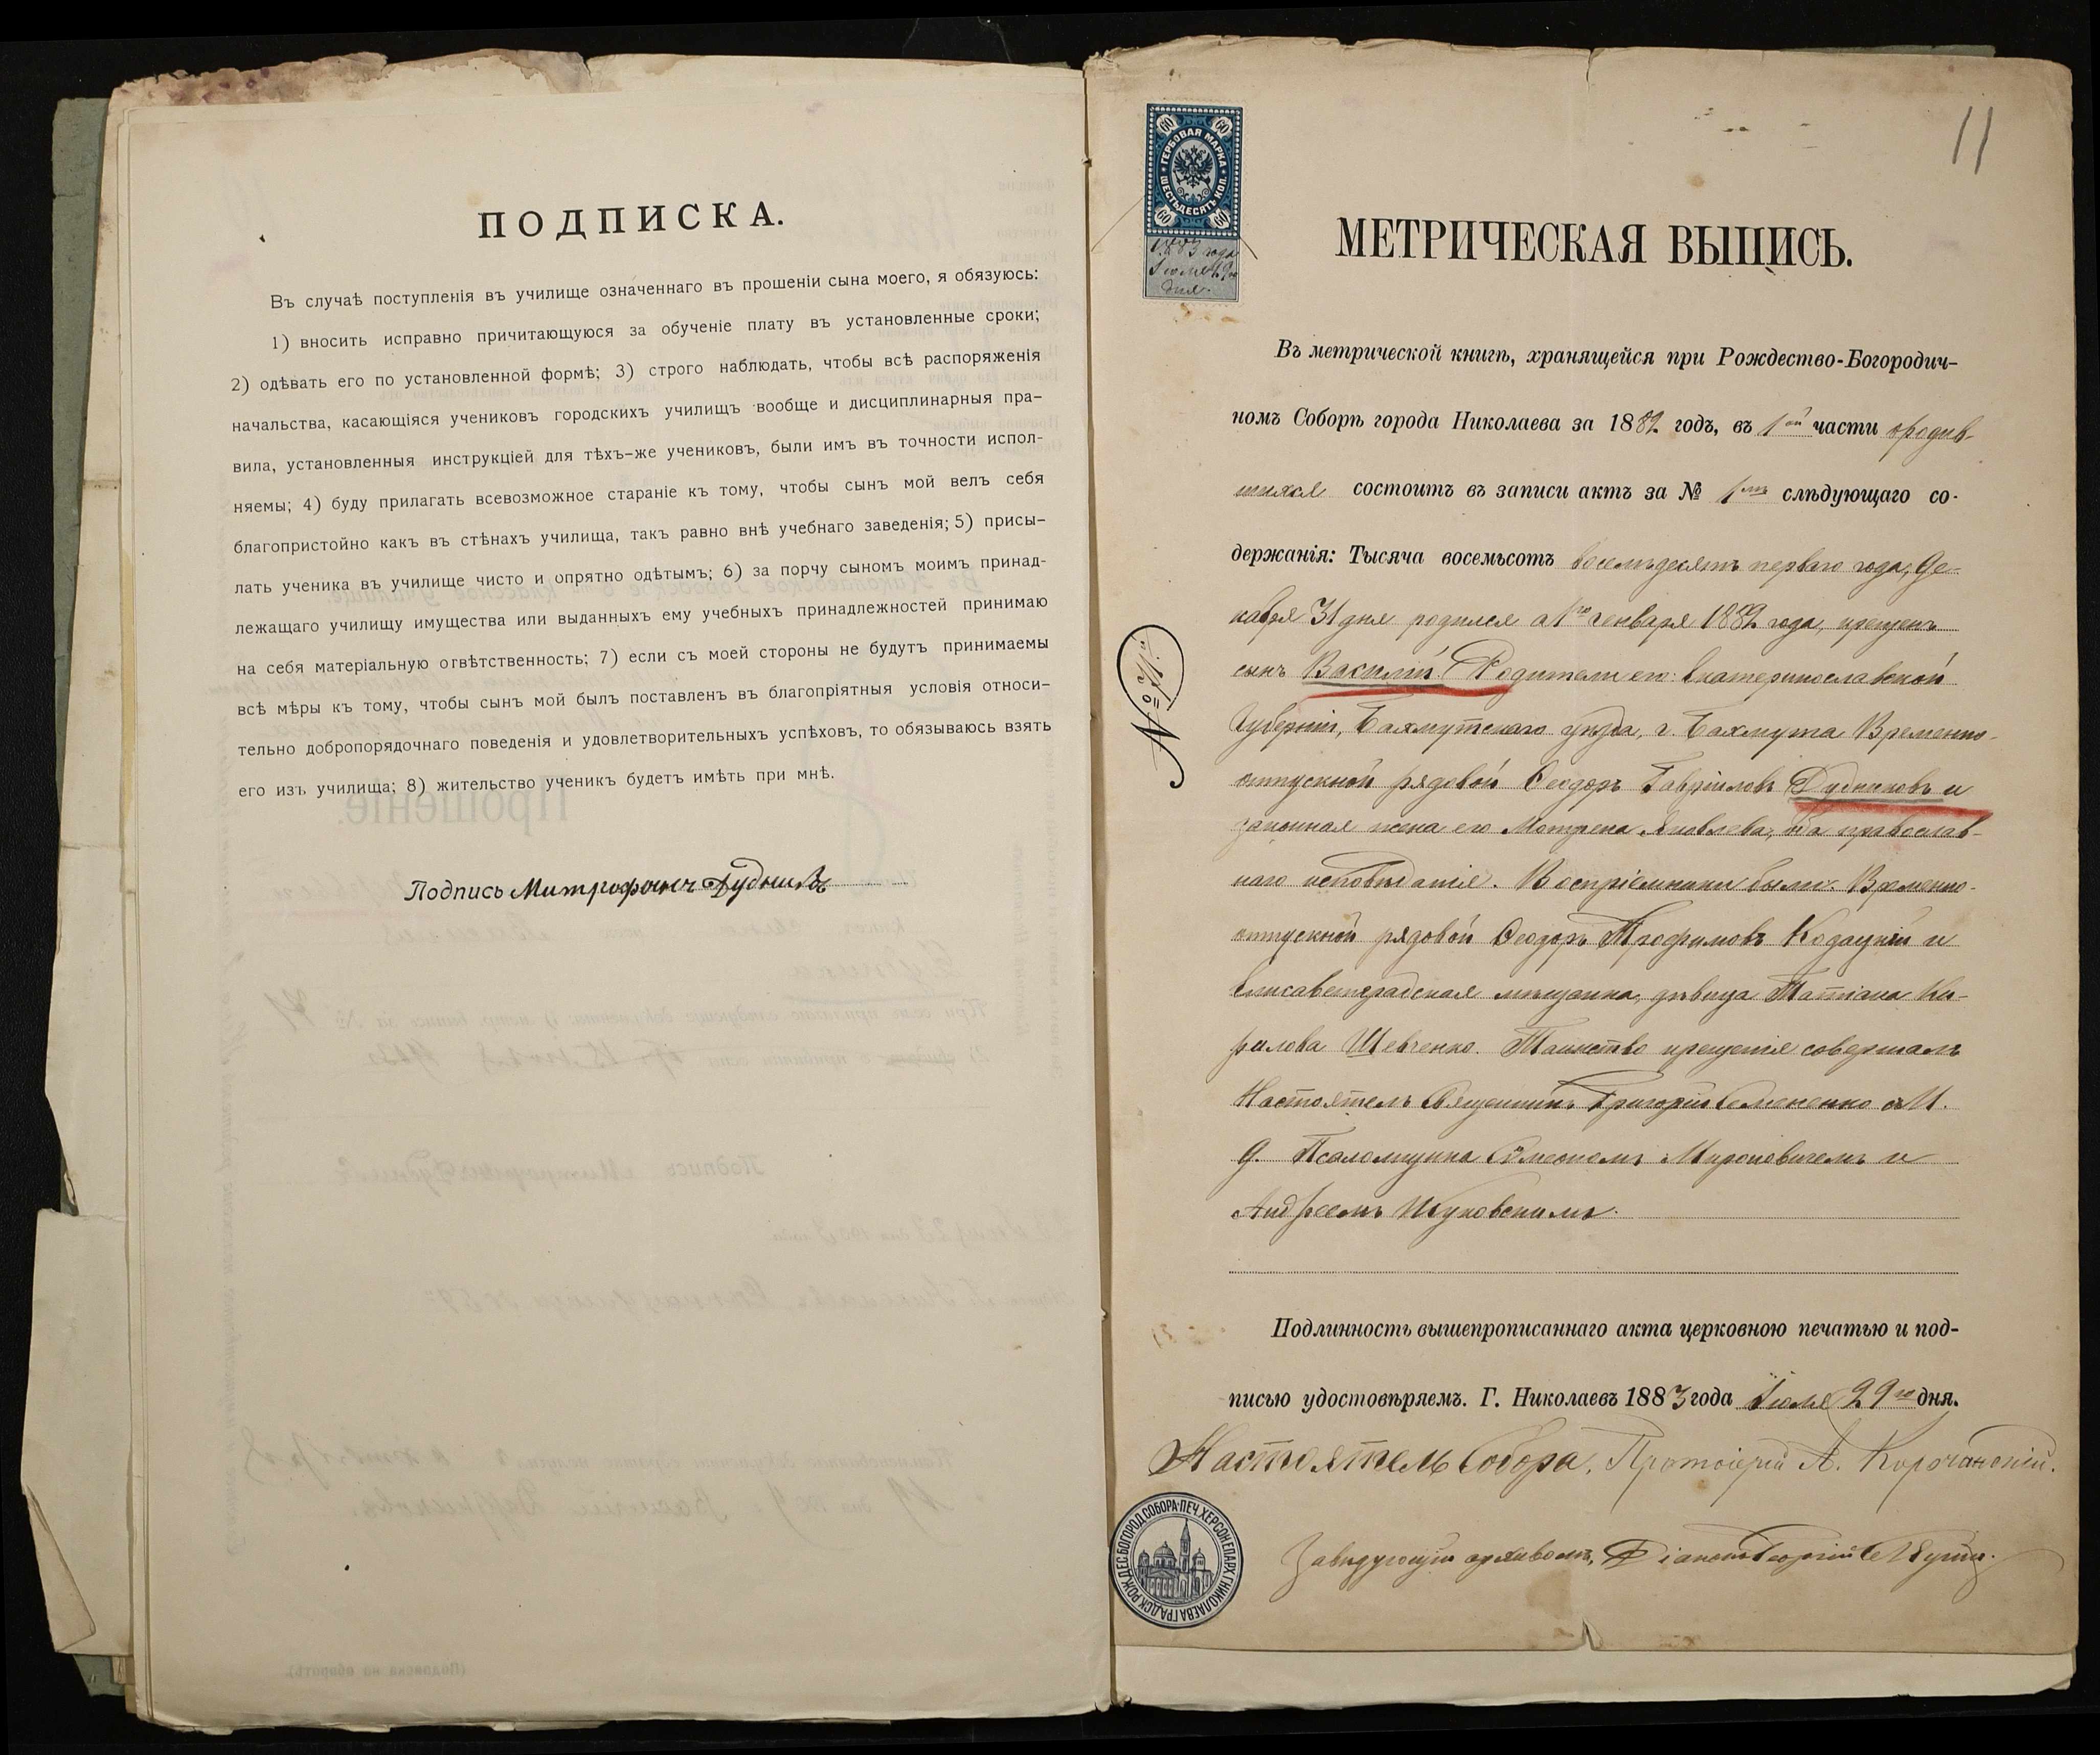 ПОДПИСКА.
Въ случаѣ поступленія въ училище означеннаго въ прошеніи сына моего, я обязуюсь:
1) вносить исправно причитающуюся за обученіе плату въ установленные сроки;
2) одѣвать его по установленной формѣ; 3) строго наблюдать, чтобы всѣ распоряженія
начальства, касающіяся учениковъ городскихъ училищъ вообще и дисциплинарныя пра-
вила, установленныя инструкціей для тѣхъ-же учениковъ, были имъ въ точности испол-
няемы; 4) буду прилагать всевозможное стараніе къ тому, чтобы сынъ мой велъ себя
благопристойно какъ въ стѣнахъ училища, такъ равно внѣ учебнаго заведенія; 5) присы-
лать ученика въ училище чисто и опрятно одѣтымъ; 6) за порчу сыномъ моимъ принад-
лежащаго училищу имущества или выданныхъ ему учебныхъ принадлежностей принимаю
на себя матеріальную огвѣтственность; 7) если съ моей стороны не будутъ принимаемы
всѣ мѣры къ тому, чтобы сынъ мой былъ поставленъ въ благопріятныя условія относи-
тельно добропорядочнаго поведенія и удовлетворительныхъ успѣховъ, то обязываюсь взять
его изъ училища; 8) жительство ученикъ будетъ имѣть при мнѣ.
Подпись Митрофанъ Дудниковъ
11
60 60
ГЕРБОВАЯ МАРКА
ШЕСТЬДЕСЯТЪ КОП.
60 60
1883 года
Іюля 29го
дня.
МЕТРИЧЕСКАЯ ВЫПИСЬ.
Въ метрической книгѣ, хранящейся при Рождество-Богородич-
номъ Соборѣ города Николаева за 1882 годъ, въ 1ой части о родив-
шихся состоитъ въ записи актъ за № 1мъ слѣдующаго со-
держанія: Тысяча восемьсотъ восемьдесятъ перваго года, Де-
кабря 31 дня родился а 1го Генваря 1882 года, крещенъ
сынъ Василій. Родители его: Екатеринославской
Губерніи, Бахмутскаго уѣзда, г. Бахмута Временно-
отпускной рядовой Ѳеодоръ Гавріиловъ Дудниковъ и
законная жена его Мотрена Яковлева, оба православ-
наго исповѣданія. Воспріемники были: Временно-
отпускной рядовой Ѳеодоръ Трофимовъ Кодацкій и
Елисаветградская мѣщанка, дѣвица Татіана Ки-
рилова Шевченко. Таинство крещенія совершалъ
Настоятель Священникъ Григорій Семененко съ И.
д. Псаломщика Мироновичемъ и
Андреемъ Жуковскимъ.
№ 71.
Подлинность вышепрописаннаго акта церковною печатью и под-
писью удостовѣряемъ. Г. Николаевъ 1883 года Іюля 29го дня.
Настоятель Собора, Протоіерей А. Корочанскій.
Завѣдующій архивомъ, Діаконъ Георгій